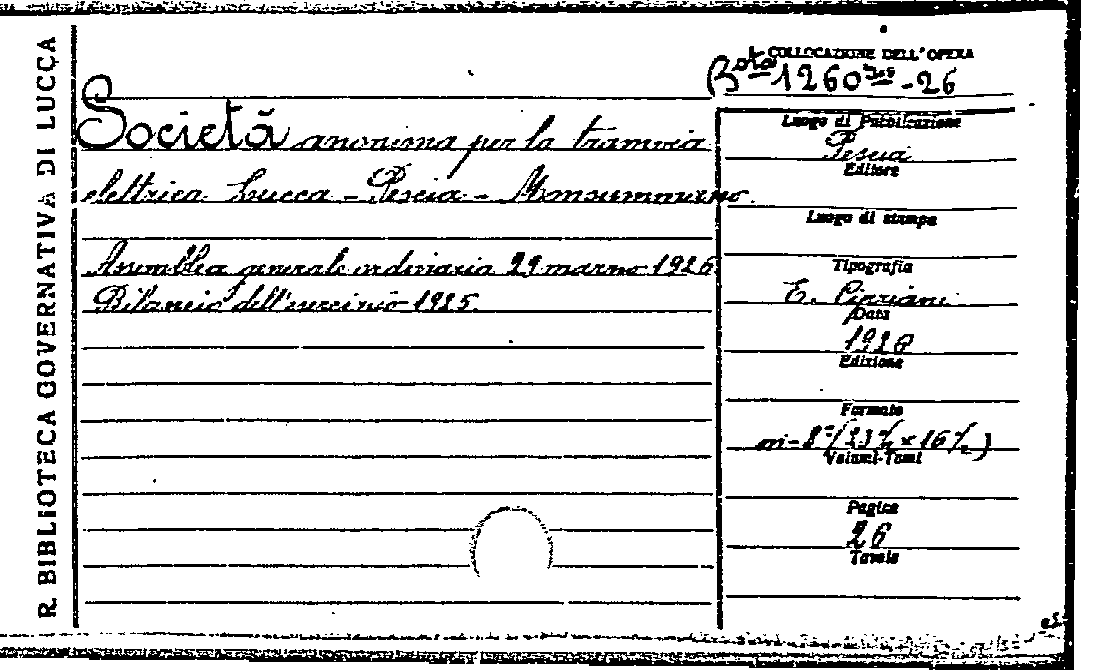 R. BIBLIOTECA GOVERNATIVA DI LUCCA
COLLOCAZIONE DELL'OPERA
Bta 1260 -26
Società anonima per la tramvia
elettrica Lucca - Pescia - Monsummano.
Assemblea generale ordinaria 29 marzo 1926
Bilancio dell'esercizio 1925.
Luogo di Pubblicazione
Pescia
Editore
Luogo di stampa
Tipografia
E. Cipriani
Data
1926
Edizione
Formato
in-8° (23 ½ x 16 ½)
Volumi-Tomi
Pagine
26
Tavole